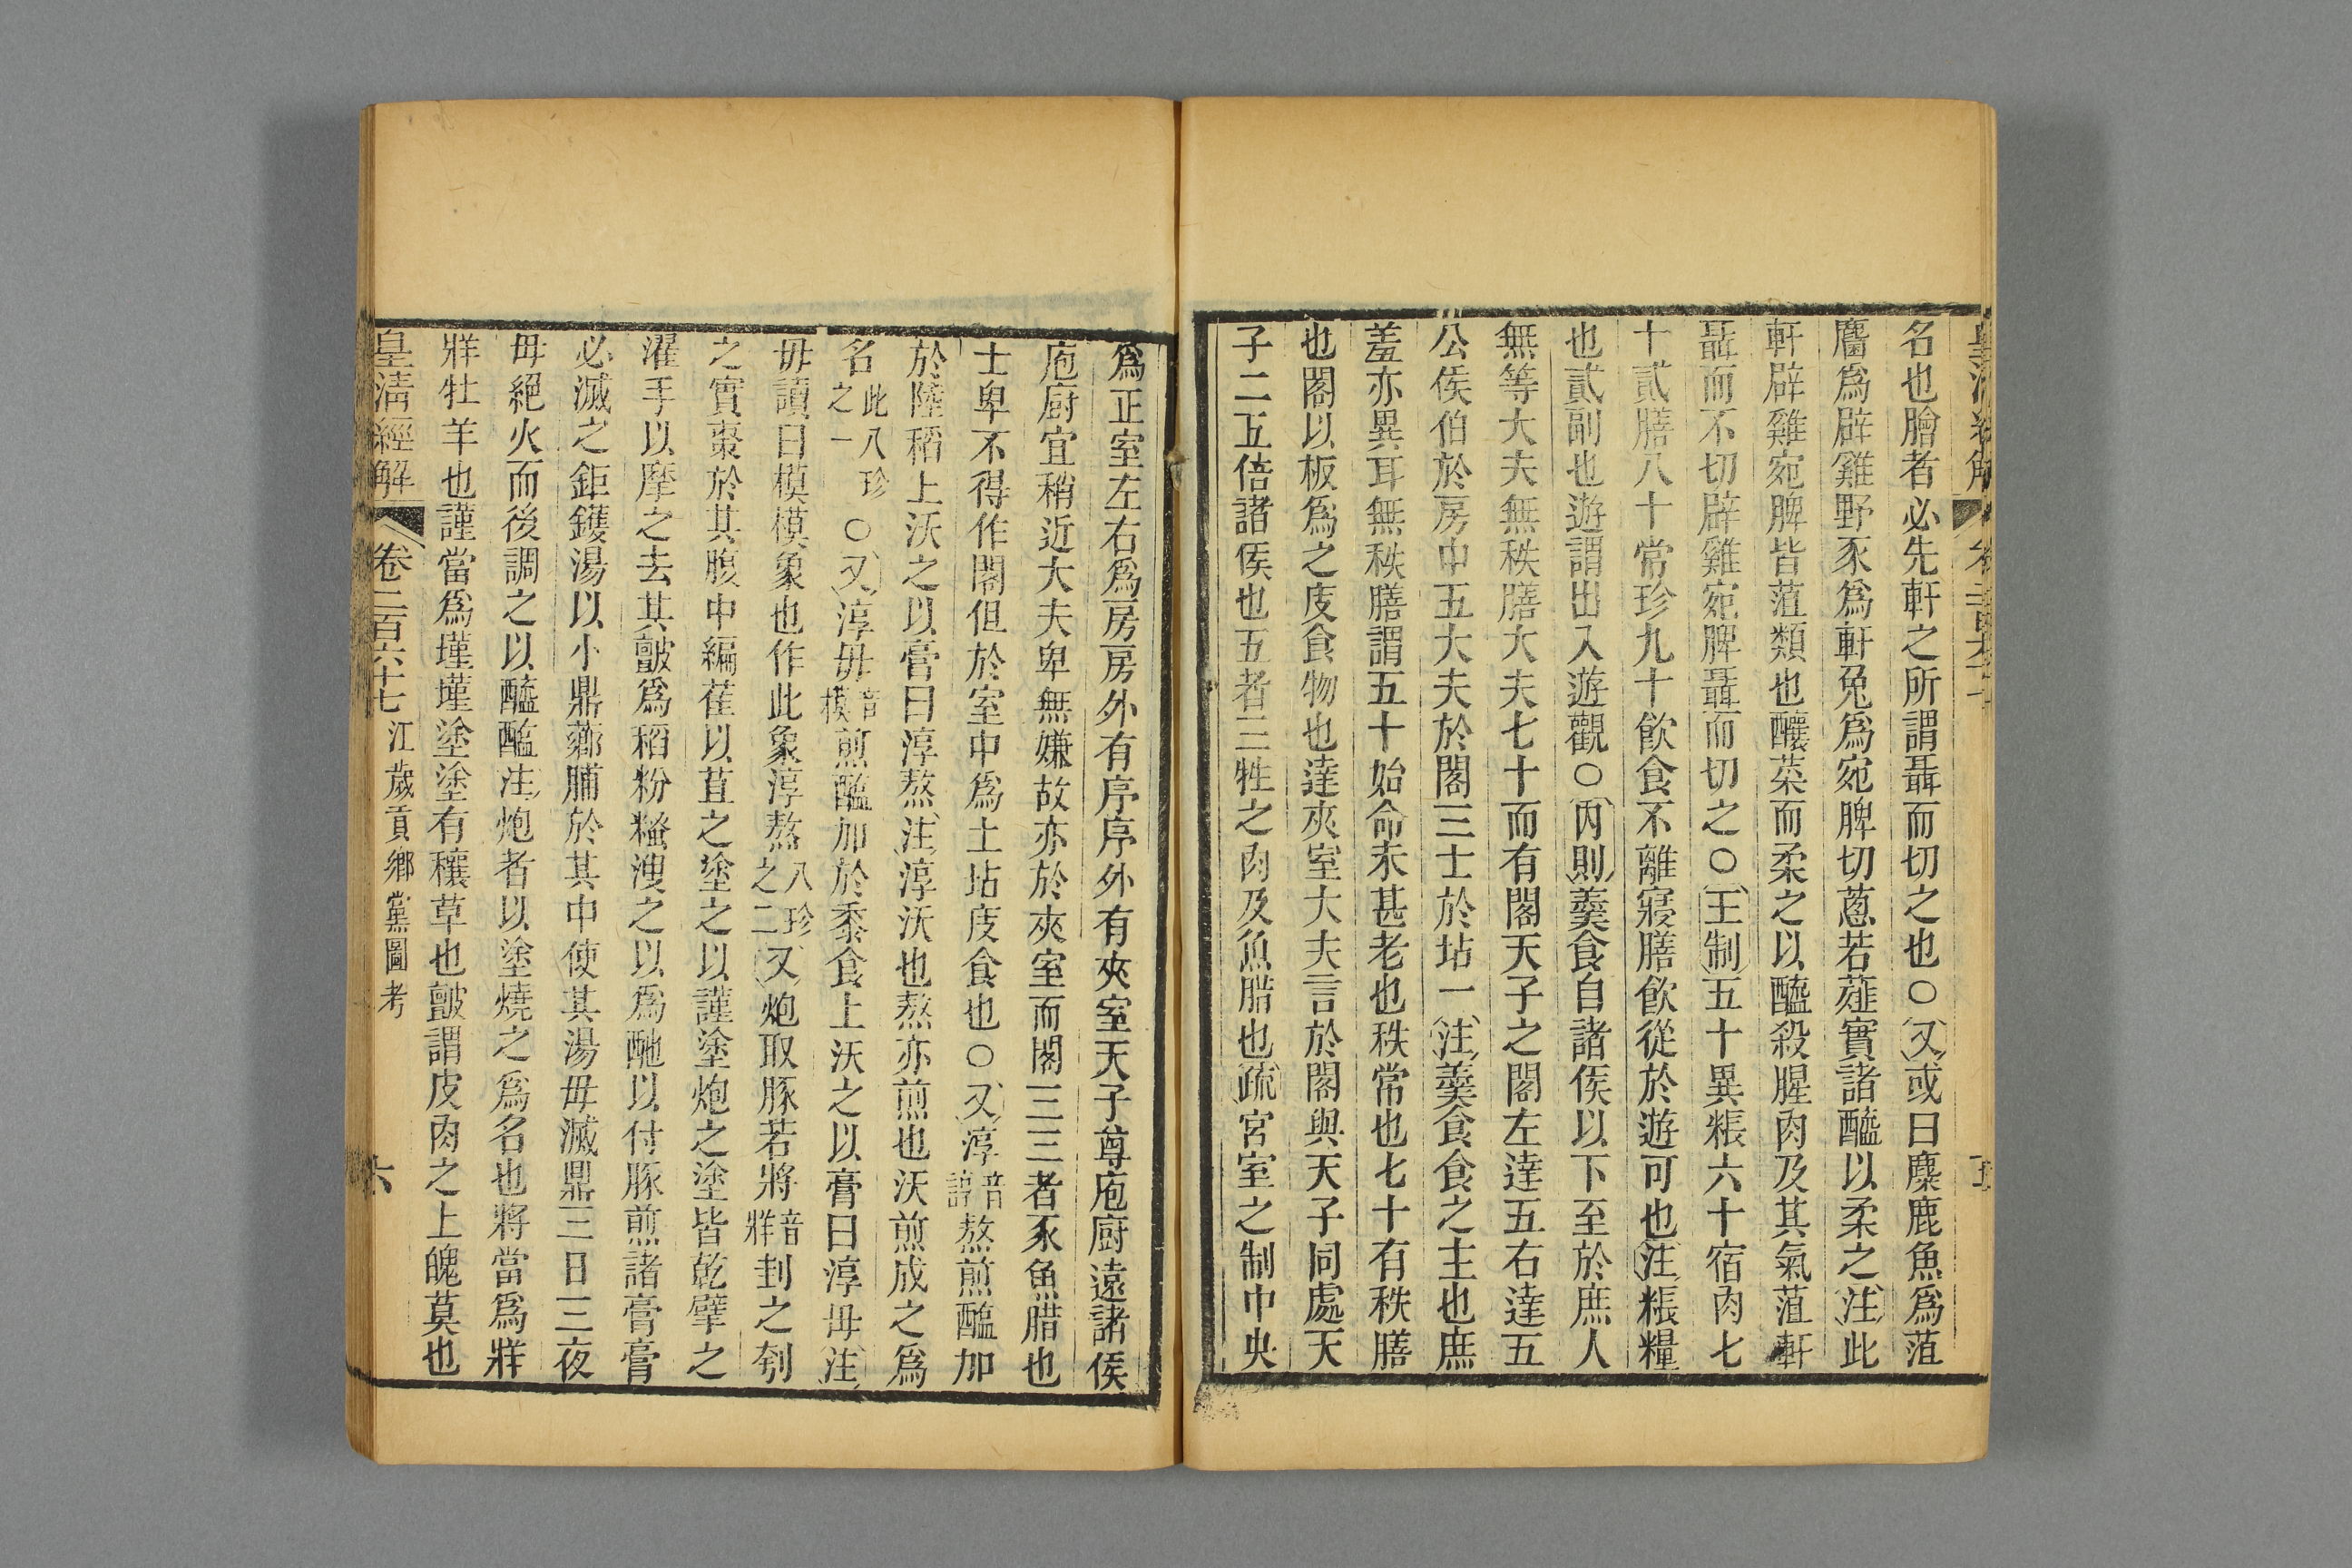 名也膾者必先軒之所謂聶而切之也○又或曰麋鹿魚爲菹
麕爲辟雞野豕爲軒兔爲宛脾切蔥若薤實諸醯以柔之注此
軒辟雞宛脾皆菹類也釀菜而柔之以醯殺腥肉及其氣菹軒
聶而不切辟雞宛脾聶而切之○王制五十異粻六十宿肉七
十貳膳八十常珍九十飲食不離寢膳飲從於遊可也注粻糧
也貳副也遊謂出入遊觀○內則羹食自諸侯以下至於庶人
無等大夫無秩膳大夫七十而有閣天子之閣左達五右達五
公侯伯於房中五大夫於閣三士於坫一注羹食食之主也庶
羞亦異耳無秩膳謂五十始命未甚老也秩常也七十有秩膳
也閣以板爲之庋食物也達夾室大夫言於閣與天子同處天
子二五倍諸侯也五者三牲之肉及魚腊也疏宮室之制中央
爲正室左右爲房房外有序序外有夾室天子尊庖廚遠諸侯
庖廚宜稍近大夫卑無嫌故亦於夾室而閣三三者豕魚腊也
士卑不得作閣但於室中爲土坫庋食也○又淳音諄熬煎醢加
於陸稻上沃之以膏曰淳熬注淳沃也熬亦煎也沃煎成之爲
名此八珍之一○又淳毋音模煎醢加於黍食上沃之以膏曰淳毋注
毋讀曰模模象也作此象淳熬八珍之二又炮取豚若將音牂刲之刳
之實棗於其腹中編萑以苴之塗之以謹塗炮之塗皆乾擘之
濯手以摩之去其皽爲稻粉糔溲之以爲酏以付豚煎諸膏膏
必滅之鉅鑊湯以小鼎薌脯於其中使其湯毋滅鼎三日三夜
毋絕火而後調之以醯醢注炮者以塗燒之爲名也將當爲牂
牂牡羊也謹當爲墐墐塗塗有穰草也皽謂皮肉之上魄莫也
皇淸經解 卷二百六十七 江歲貢鄉黨圖考 六